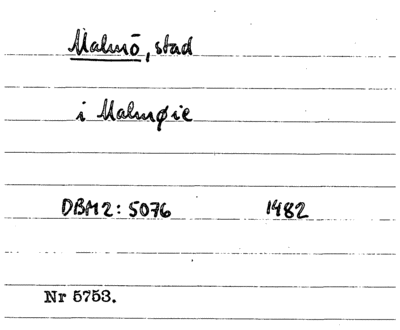 Malmö, stad
i Malmøie
DBM2: 5076 1482
Nr 5753.